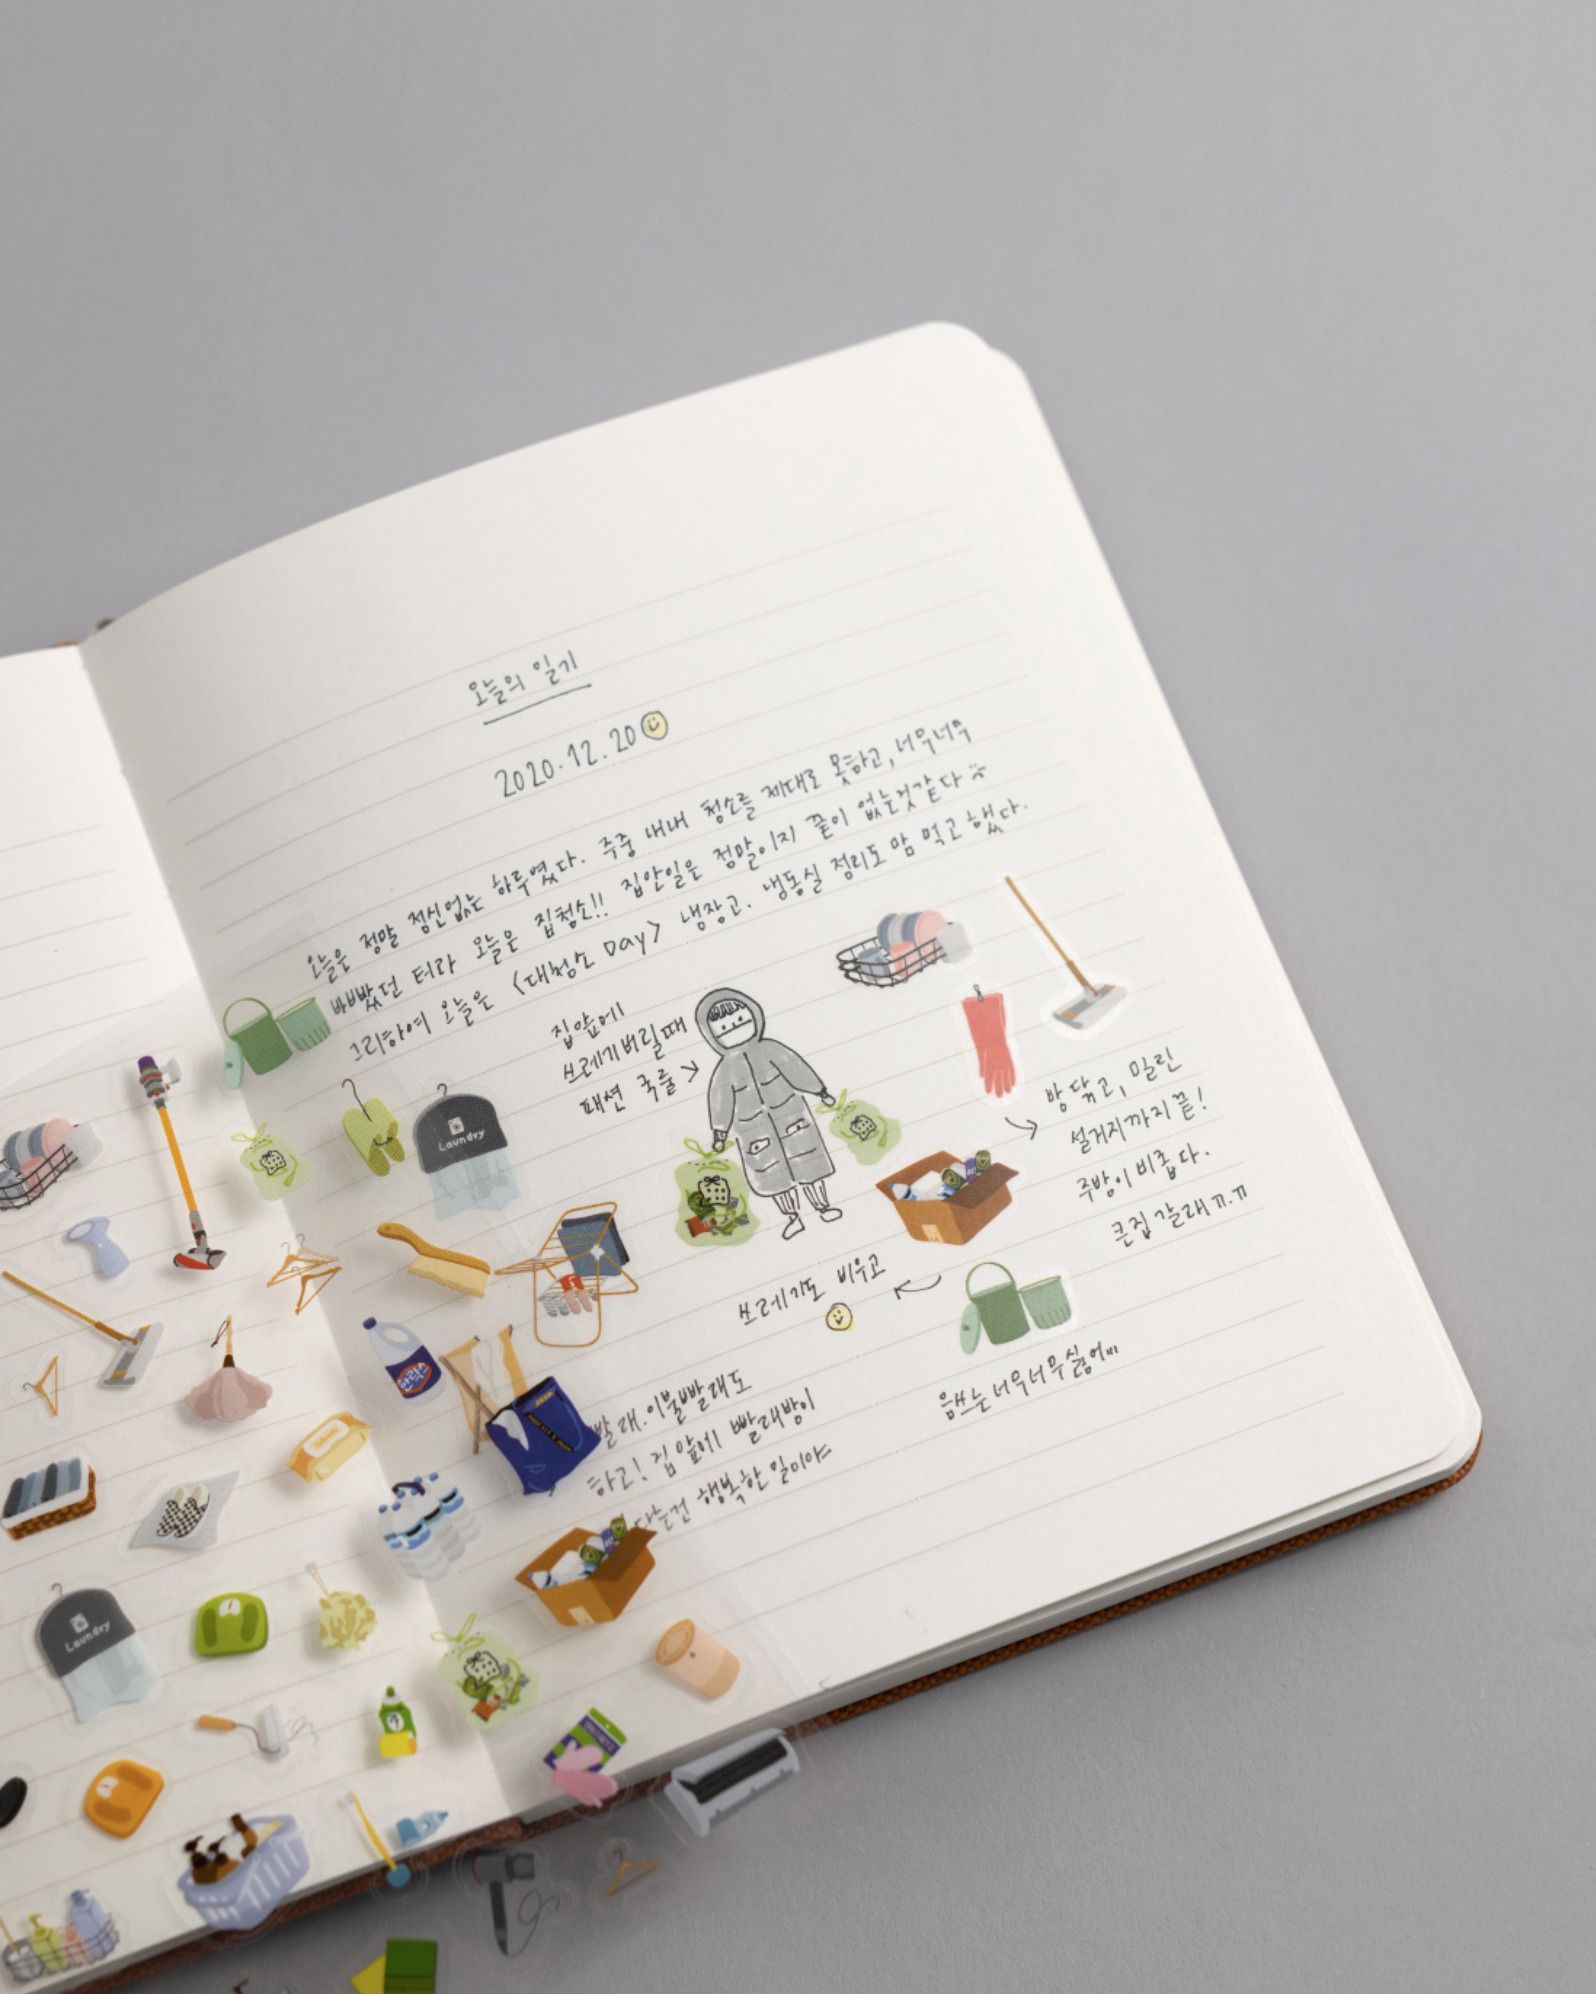 오늘의 일기
2020.12.20
오늘은 정말 정신없는 하루였다. 주중 내내 청소를 제대로 못하고, 너무너무
바빴던 터라 오늘은 집청소!! 집안일은 정말이지 끝이 없는것같다
그리하여 오늘은 <대청소 Day> 냉장고. 냉동실 정리도 맘 먹고 했다.
집앞에
쓰레기버릴때
패션 국룰
방 닦고, 밀린
설거지까지 끝!
주방이 비좁다.
큰집 갈래 ㄲ.ㄲ
쓰레기도 비우고
음쓰는 너무너무싫어
빨래. 이불빨래도
하고! 집 앞에 빨래방이
다는건 행복한 일이야
Laundry
Laundry